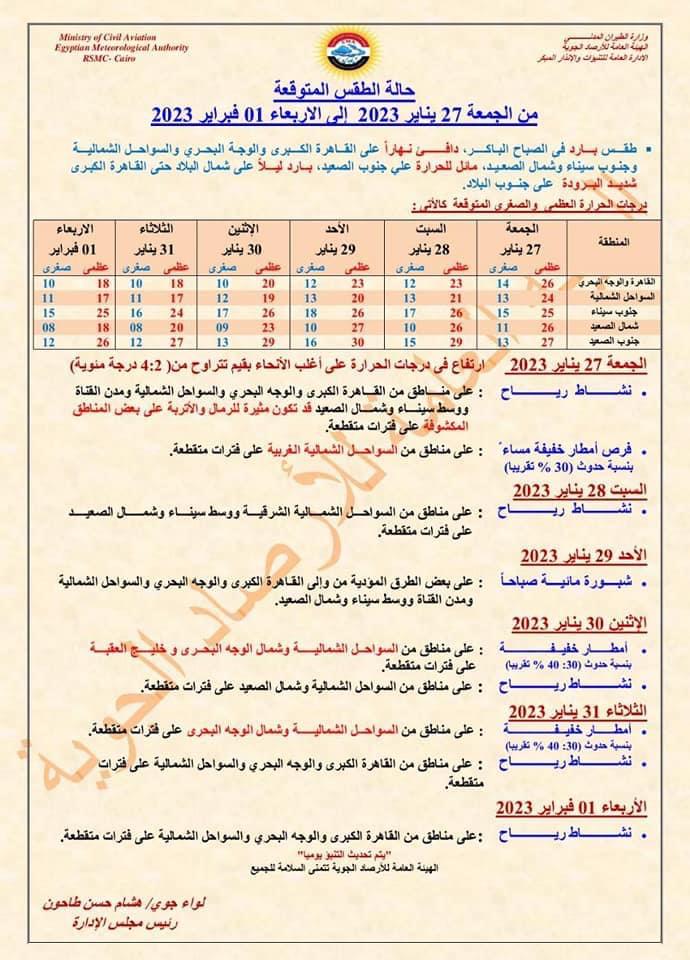 Ministry of Civil Aviation
Egyptian Meteorological Authority
RSMC- Cairo
وزارة الطيران المدنـــي
الهيئة العامة للأرصاد الجوية
الادارة العامة للتنبؤات والإنذار المبكر
حالة الطقس المتوقعة
من الجمعة 27 يناير 2023 إلى الاربعاء 01 فبراير 2023
▪ طقـس بـارد فى الصباح الباكـر، دافـئ نـهاراً على القاهرة الكبرى والوجة البحري والسواحـل الشمالية
وجنوب سيناء وشمال الصعيـد، مائل للحرارة علي جنوب الصعيد، بارد ليـلاً على شمال البلاد حتى القاهرة الكبرى
شديد البـرودة على جنوب البلاد.
درجات الحرارة العظمي والصغري المتوقعة كالأتي:
المنطقة الجمعة السبت الأحد الإثنين الثلاثاء الاربعاء
27 يناير 28 يناير 29 يناير 30 يناير 31 يناير 01 فبراير
عظمى صغرى عظمى صغرى عظمى صغرى عظمى صغرى عظمى صغرى عظمى صغرى
القاهره والوجه البحري 26 14 23 12 23 12 20 10 18 10 18 10
السواحل الشمالية 24 13 21 13 20 13 19 12 17 11 17 11
جنوب سيناء 25 15 26 17 26 18 23 13 25 16 25 15
شمال الصعيد 26 11 26 10 27 10 23 09 20 08 18 08
جنوب الصعيد 27 13 29 15 30 16 29 15 27 12 26 12
الجمعة 27 يناير 2023 ارتفاع فى درجات الحرارة على أغلب الأنحاء بقيم تتراوح من( 4:2 درجة مئوية)
• نشـــاط ريـــاح : على منـاطق من القـاهرة الكبرى والوجه البحري والسواحل الشمالية ومدن القناة
ووسط سينـاء وشمـال الصعيد قد تكون مثيرة للرمال والأتربة على بعض المناطق
المكشوفة على فترات متقطعة.
• فرص أمطار خفيفة مساءً : على مناطق من السواحـل الشمالية الغربية على فترات متقطعة.
بنسبة حدوث (30 % تقريبا)
السبت 28 يناير 2023
• نشـــاط ريـــاح : على مناطق من السواحـل الشمـالية الشرقيـة ووسط سينـاء وشمــال الصعيــد
على فترات متقطعة.
الأحد 29 يناير 2023
• شبــورة مائيـة صباحاً : على بعض الطرق المؤدية من وإلى القـاهرة الكبرى والوجه البحري والسواحل الشمالية
ومدن القناة ووسط سيناء وشمال الصعيد.
الإثنين 30 يناير 2023
• أمطــار خفيفـــة : على مناطق من السواحـل الشماليـــة وشمال الوجه البحـرى و خليـج العقبـة
بنسبة حدوث (30: 40 % تقريبا) على فترات متقطعة.
• نشـــاط ريـــاح : على مناطق من السواحل الشمالية وشمال الصعيد على فترات متقطعة.
الثلاثاء 31 يناير 2023
• أمطــار خفيفـــة : على مناطق من السواحـل الشماليـــة وشمال الوجه البحرى على فترات متقطعة.
بنسبة حدوث (30: 40 % تقريبا)
• نشـــاط ريـــاح : على مناطق من القاهرة الكبرى والوجه البحري والسواحل الشمالية على فترات
متقطعة.
الأربعاء 01 فبراير 2023
• نشـــاط ريـــاح : على مناطق من القاهرة الكبرى والوجه البحري والسواحل الشمالية على فترات متقطعة.
"يتم تحديث التنبؤ يوميا"
الهيئة العامة للأرصاد الجوية تتمنى السلامة للجميع
لواء جوي/ هشام حسن طاحون
رئيس مجلس الإدارة
الهيئة العامة للأرصاد الجوية